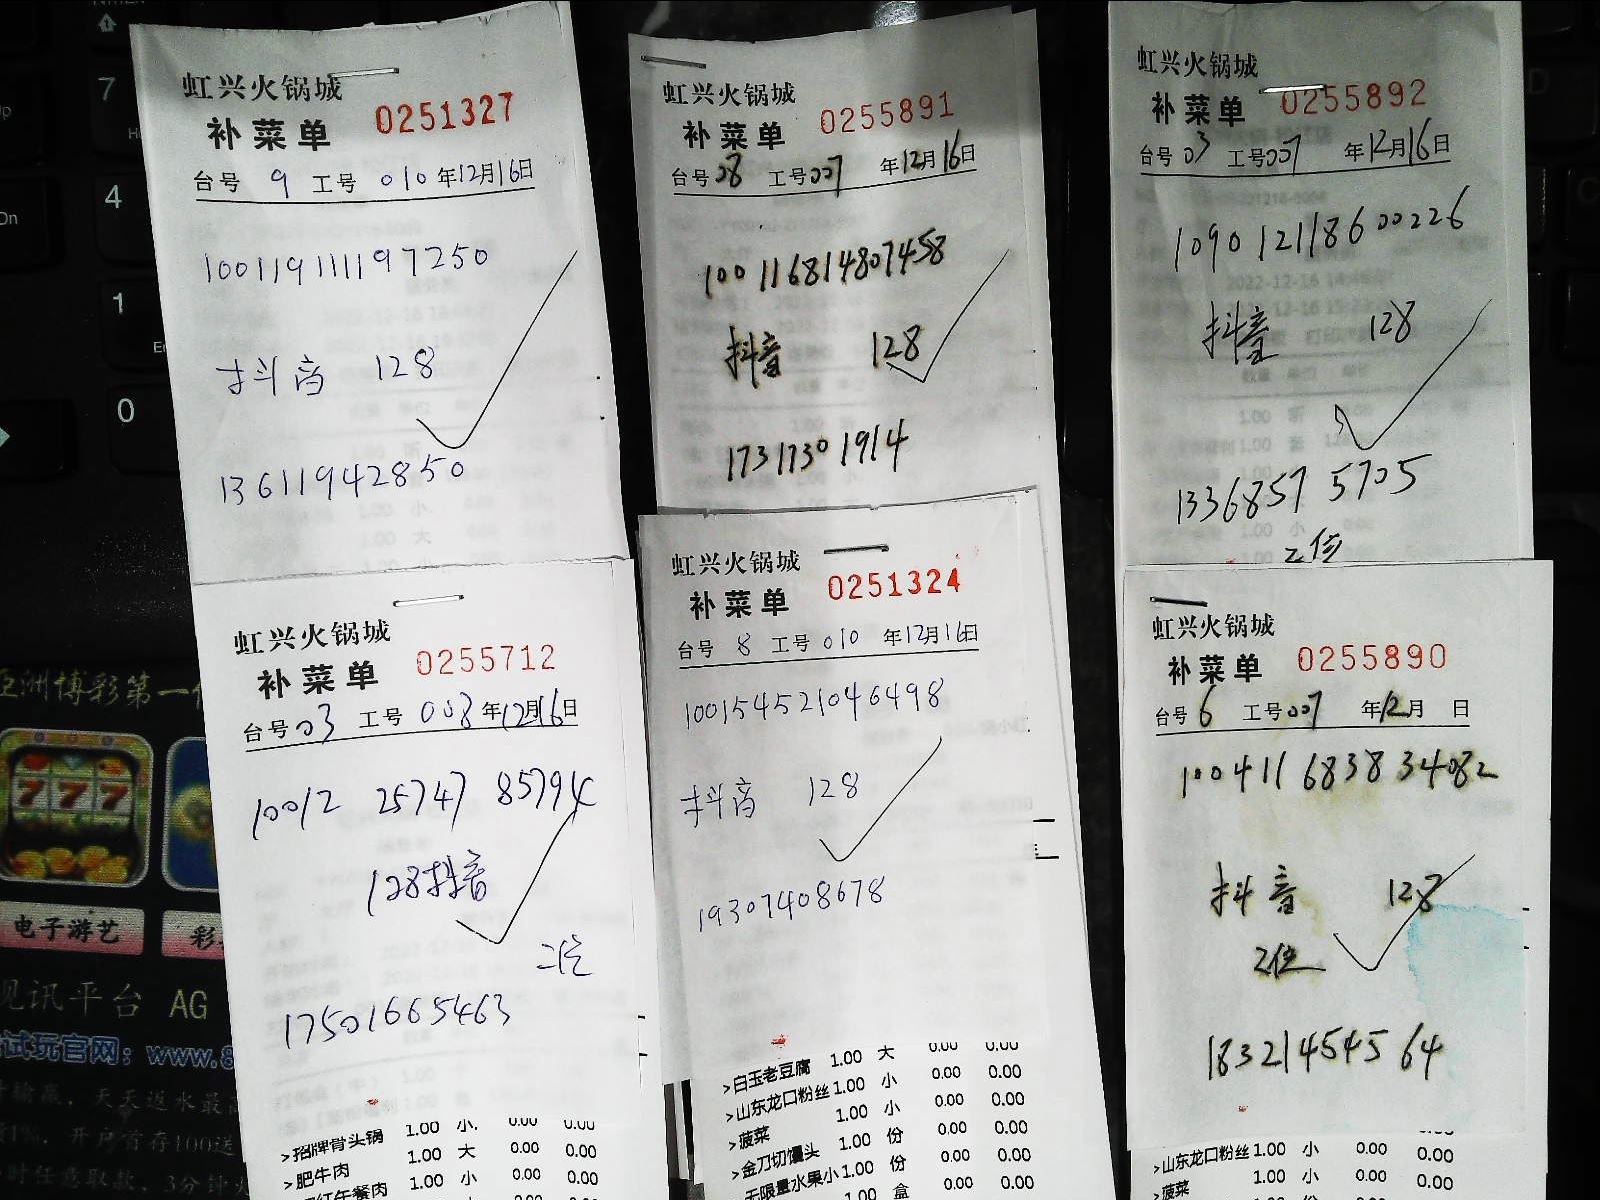 虹兴火锅城
补菜单 0251327
台号 9 工号 010 年12月16日
100119111197250
抖音 128
13611942850
虹兴火锅城
补菜单 0255891
台号08 工号007 年12月16日
10011681480 7458
抖音 128
17317301914
虹兴火锅城
补菜单 0255892
台号03 工号007 年12月16日
109012118600226
抖音 128
13368575705
2位
虹兴火锅城
补菜单 0255712
台号03 工号 008 年12月16日
10012 25747 85794
128抖音
二位
17501665463
>招牌骨头锅 1.00 小 0.00 0.00
>肥牛肉 1.00 大 0.00 0.00
午餐肉 1.00 小 0.00 0.00
虹兴火锅城
补菜单 0251324
台号 8 工号 010 年12月16日
100154521046498
抖音 128
19307408678
>白玉老豆腐 1.00 大 0.00 0.00
>山东龙口粉丝 1.00 小 0.00 0.00
>菠菜 1.00 小 0.00 0.00
>金刀切馒头 1.00 份 0.00 0.00
无限量水果小 1.00 份 0.00 0.00
1.00 盒 0.00 0.00
虹兴火锅城
补菜单 0255890
台号 6 工号007 年12月 日
100411 6838 34082
抖音 128
2位
18321454564
>山东龙口粉丝 1.00 小 0.00 0.00
>菠菜 1.00 小 0.00 0.00
7
4
1
0
亚洲博彩第一
777
电子游艺
彩
视讯平台 AG
试玩官网：www.8
天天返水最高
1%，开户首存100送
时任意取款，3分钟